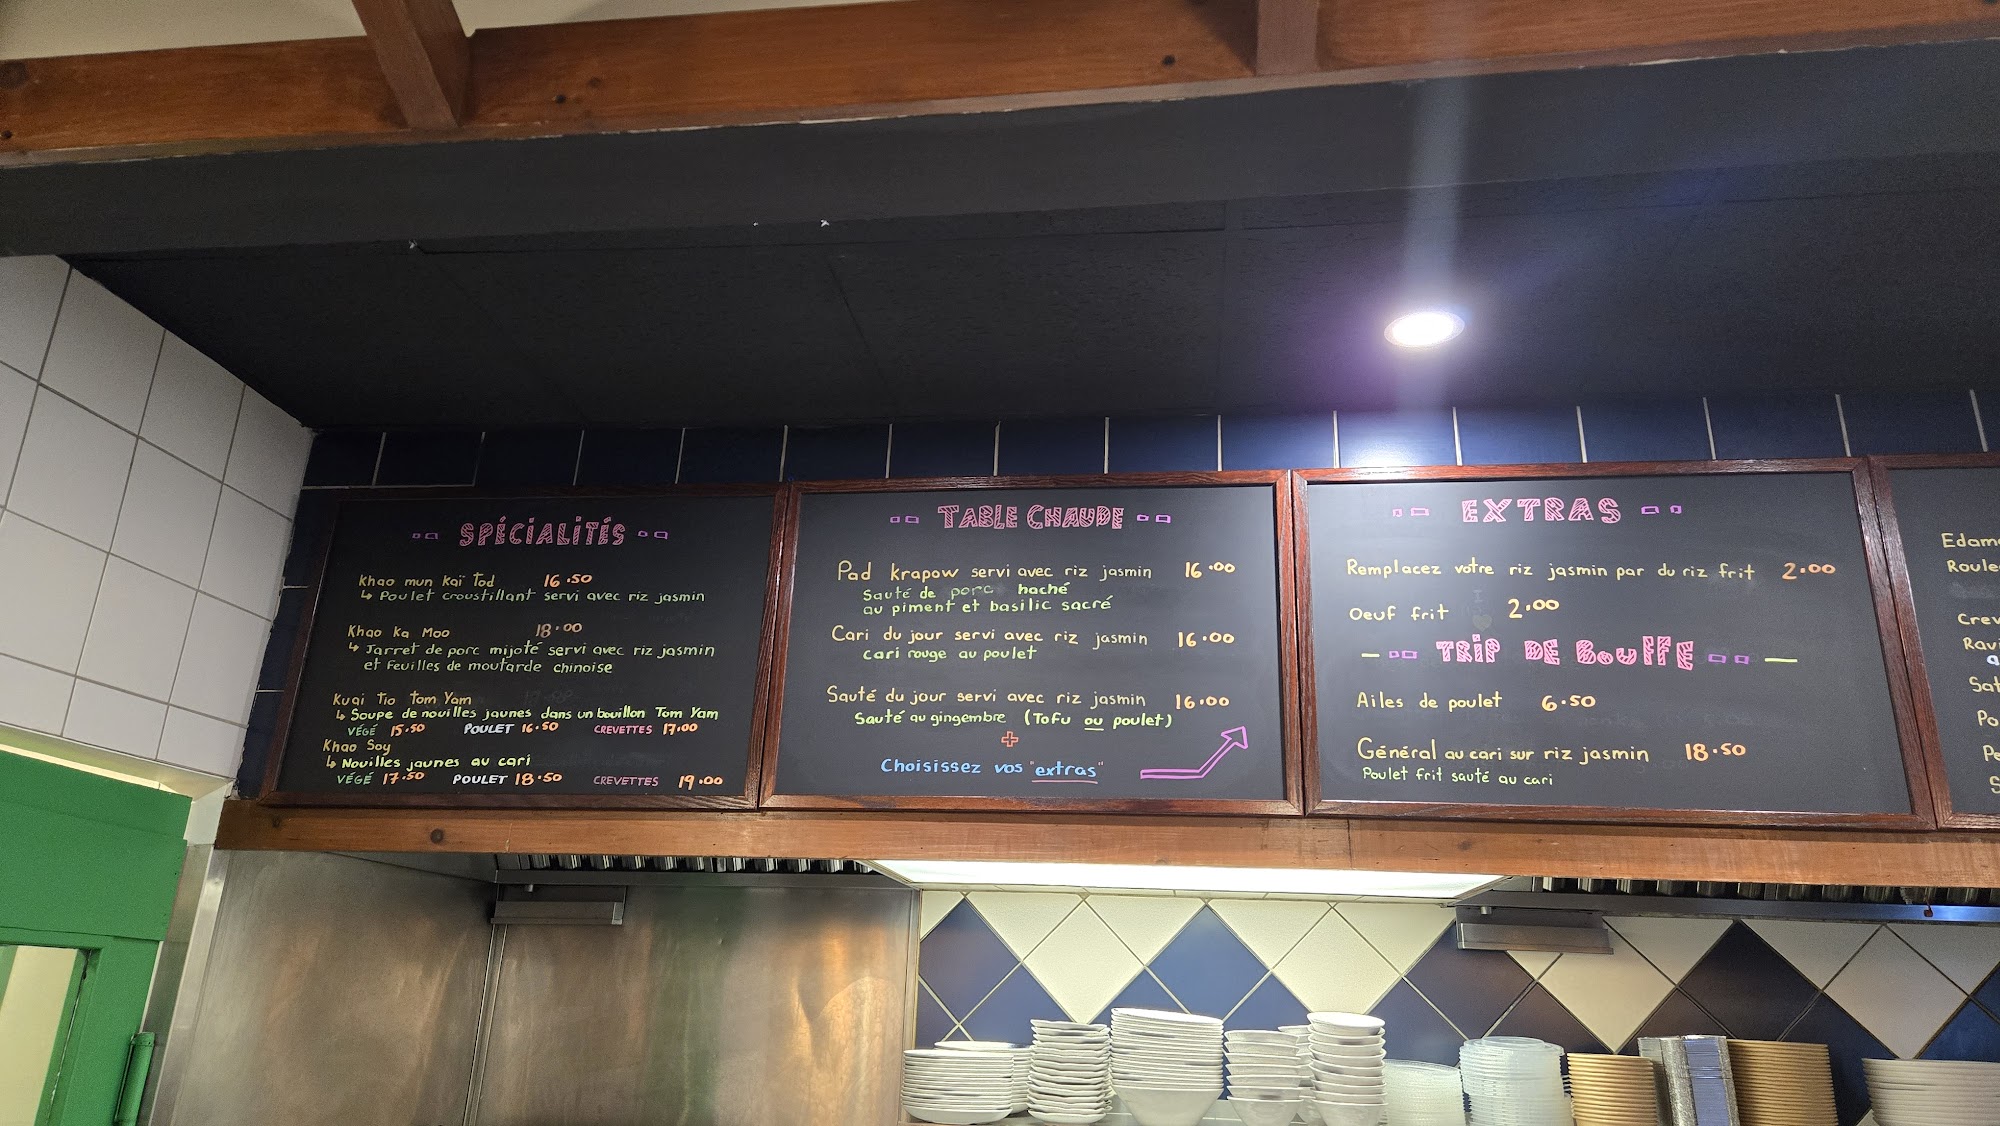 SPÉCIALITÉS
Khao mun Kaï Tod 16.50
↳ Poulet croustillant servi avec riz jasmin
Khao Ka Moo 18.00
↳ Jarret de porc mijoté servi avec riz jasmin
et feuilles de moutarde chinoise
Kuai Tio Tom Yam
↳ Soupe de nouilles jaunes dans un bouillon Tom Yam
VÉGÉ 15.50 POULET 16.50 CREVETTES 17.00
Khao Soy
↳ Nouilles jaunes au cari
VÉGÉ 17.50 POULET 18.50 CREVETTES 19.00
TABLE CHAUDE
Pad Krapow servi avec riz jasmin 16.00
Sauté de porc haché
au piment et basilic sacré
Cari du jour servi avec riz jasmin 16.00
cari rouge au poulet
Sauté du jour servi avec riz jasmin 16.00
Sauté au gingembre (Tofu ou poulet)
+
Choisissez vos "extras"
EXTRAS
Remplacez votre riz jasmin par du riz frit 2.00
Oeuf frit 2.00
TRIP DE BOUFFE
Ailes de poulet 6.50
Général au cari sur riz jasmin 18.50
Poulet frit sauté au cari